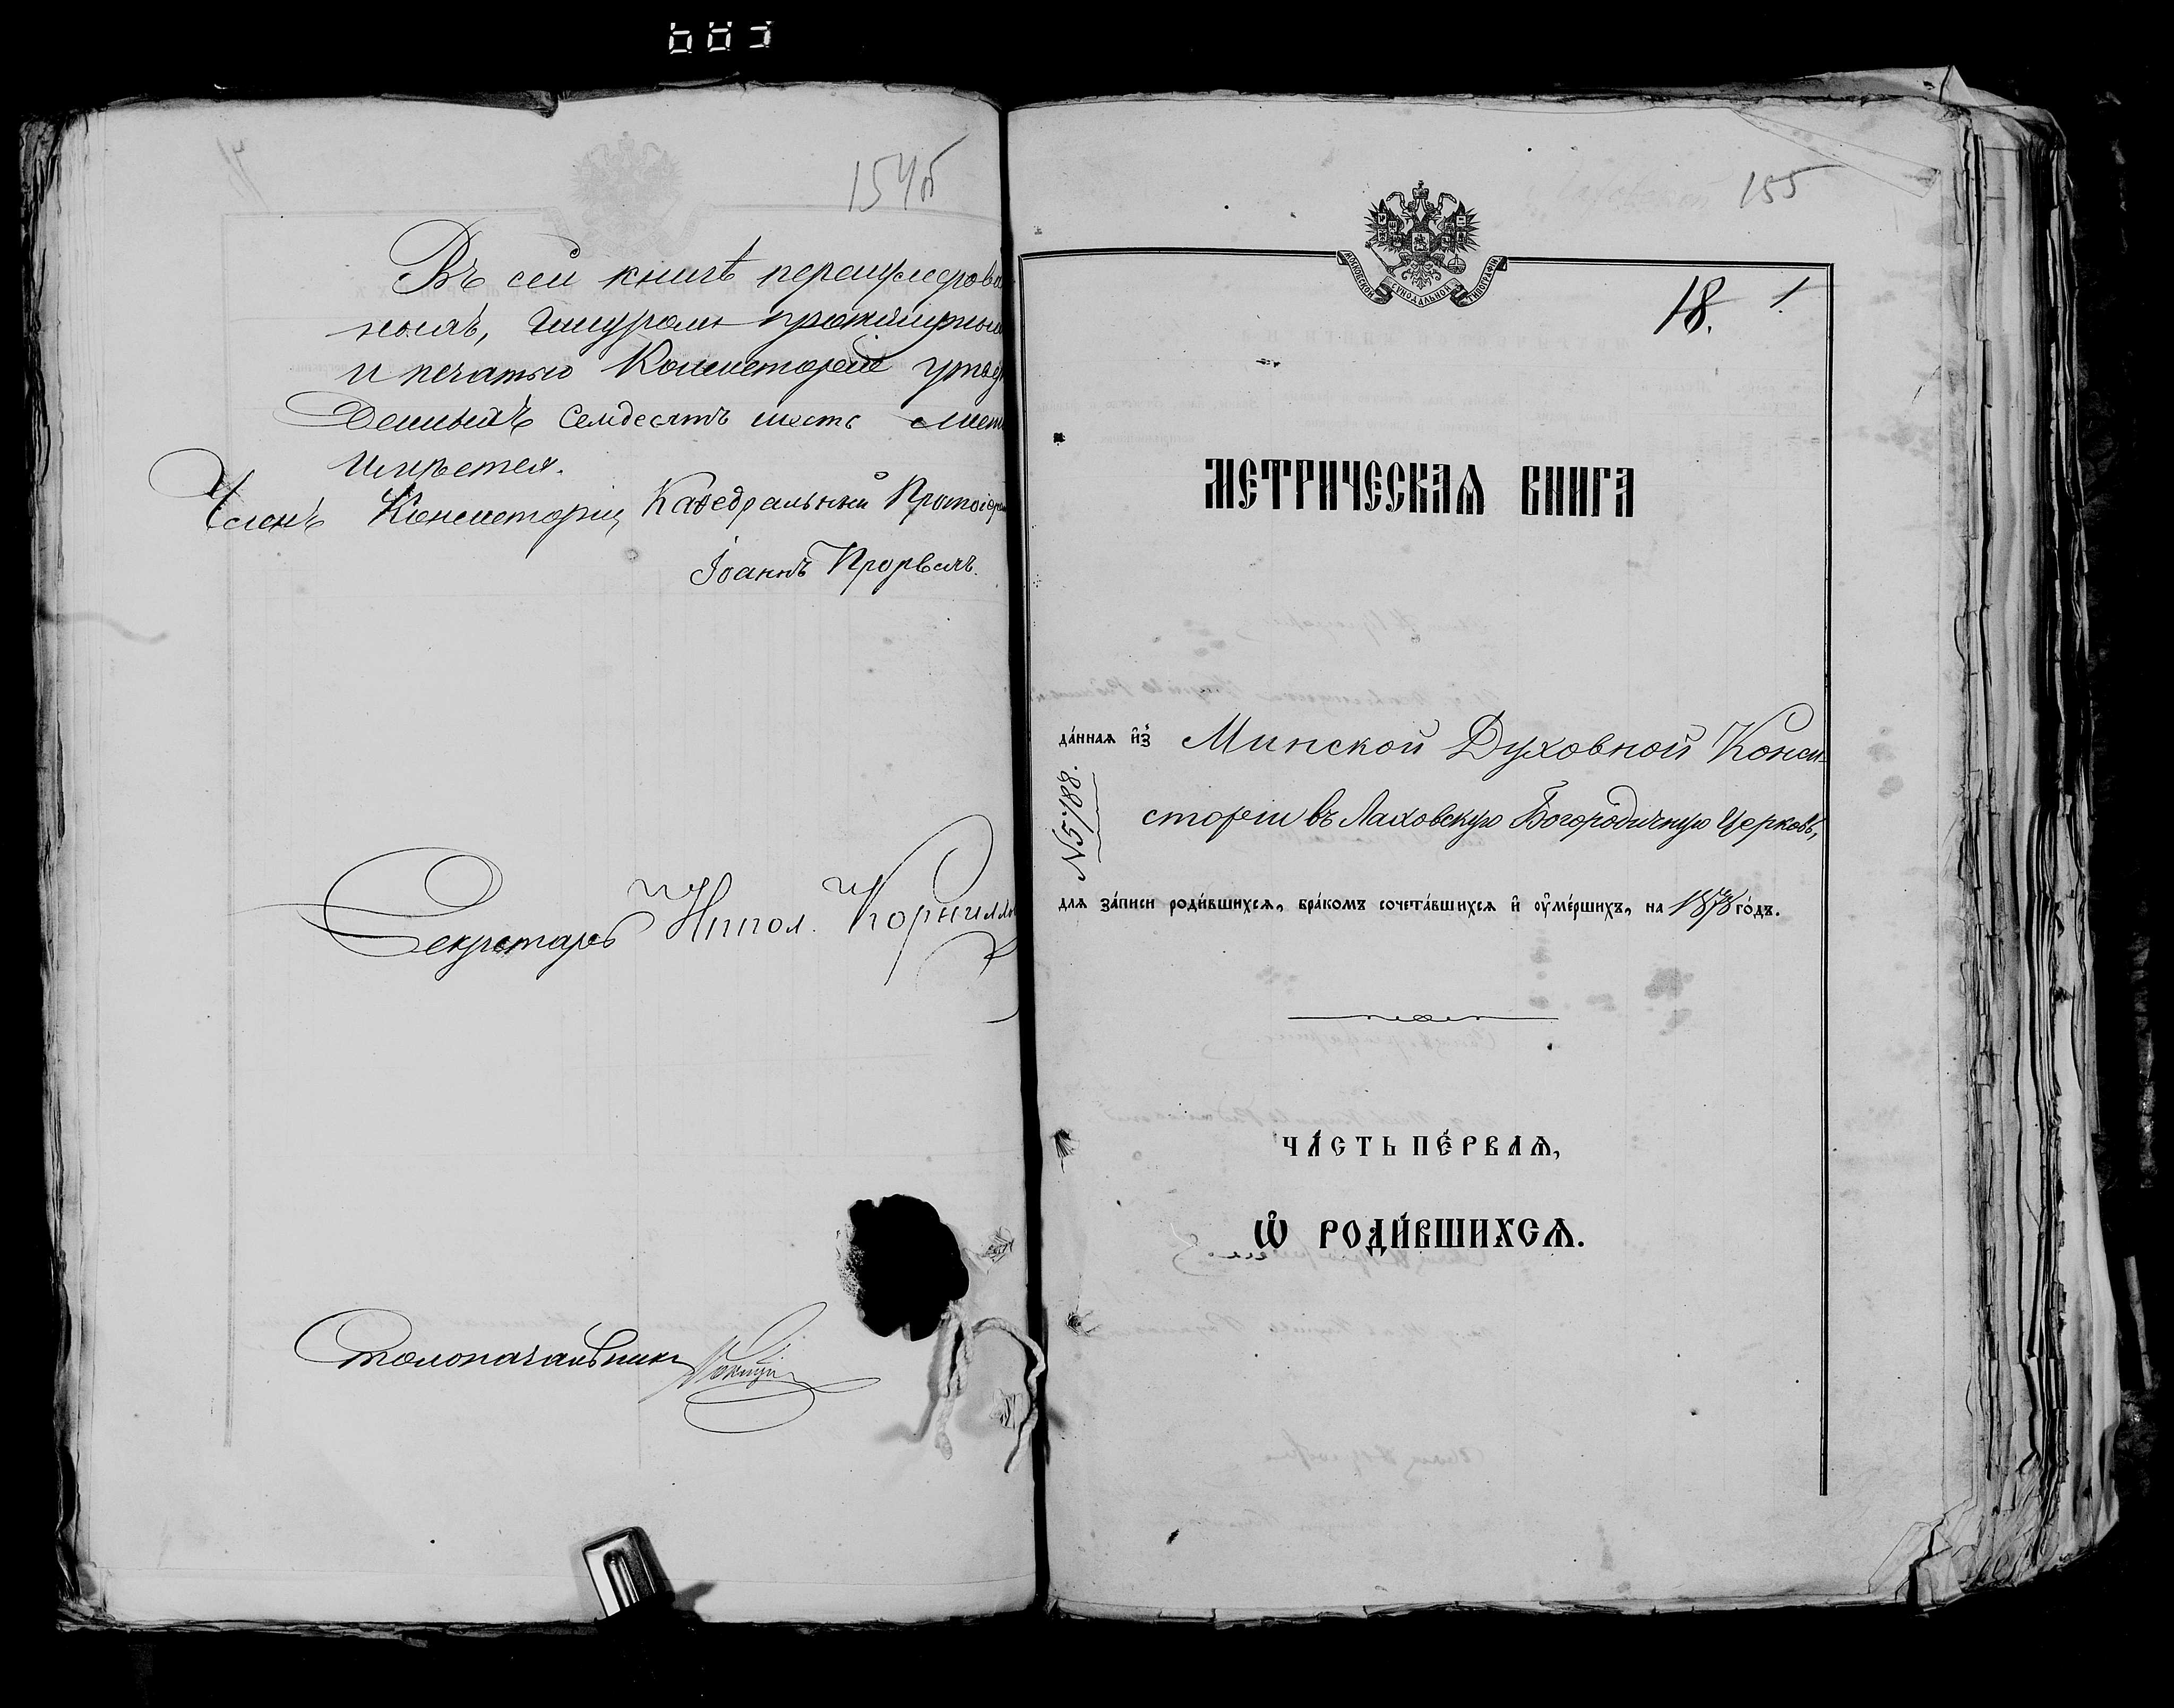 154б
Въ сей книгѣ перенумерова
ныхъ, шнуромъ прошнурован
и печатью Консисторіи утверж
денныхъ семдесятъ шесть лист
имѣется.
Членъ Консисторіи, Каѳедральный Протоіере
Іоаннъ
Секретарь Иппол. Корнилло
Столоначальникъ
155
МОСКОВСКОЙ СѴНОДАЛЬНОЙ ТИПОГРАФІИ
18. 1.
МЕТРИЧЕСКАѦ КНИГА
да́ннаѧ и҆з̾ Минской Духовной Конси-
сторіи въ Лаховскую Богородичную Церковь,
№5788.
длѧ за́писи роди́вшихсѧ, бра́комъ сочета́вшихсѧ и҆ ᲂу҆ме́ршихъ, на 1878 го́дъ.
ЧА́СТЬ ПЕ́РВАѦ,
Ѡ҆ РОДИ́ВШИХСѦ.